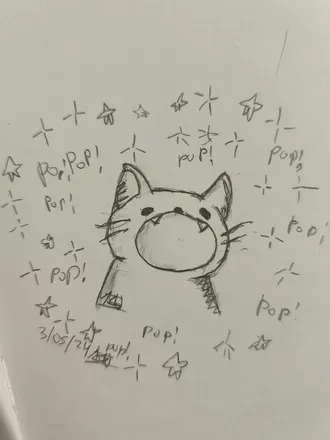 pop!
pop! pop!
pop!
pop!
pop!
pop!
pop!
pop!
3/05/24
pop!
pop!